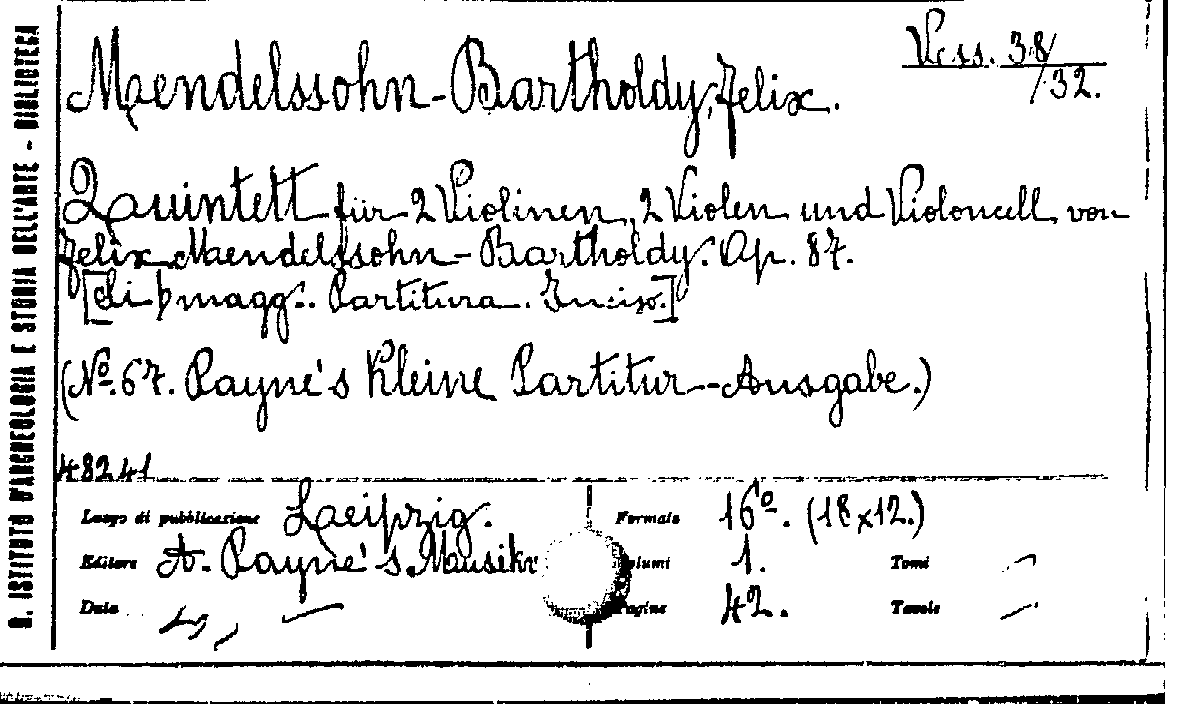 R. ISTITUTO D'ARCHEOLOGIA E STORIA DELL'ARTE - BIBLIOTECA
Vess. 38/32.
Mendelssohn-Bartholdy, Felix.
Quintett für 2 Violinen, 2 Violen und Violoncell von
Felix Mendelssohn-Bartholdy. Op. 87.
[Si b magg. Partitura. Inciso.]
(Nº. 67. Payne's Kleine Partitur-Ausgabe.)
48241
Luogo di pubblicazione Leipzig. Formato 16º. (18x12.)
Editore A. Payne's Musikv Volumi 1. Tomi —
Data — Pagine 42. Tavole —